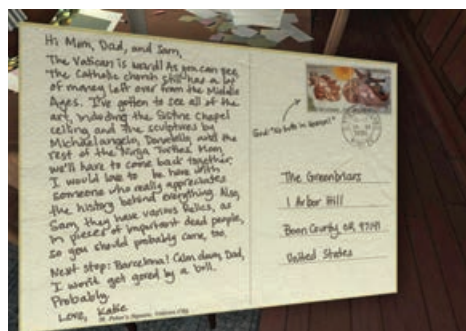 Hi Mom, Dad, and Sam,
The Vatican is weird! As you can see,
the Catholic church still has a lot
of money left over from the Middle
Ages. I've gotten to see all of the
art, including the Sistine Chapel
ceiling and the sculptures by
Michaelangelo, Donatello and the
rest of the Ninja Turtles. Mom,
we'll have to come back together,
I would love to be here with
someone who really appreciates
the history behind everything. Also,
Sam, they have various relics, as
in pieces of important dead people,
so you should probably come, too.
Next stop: Barcelona! Calm down, Dad,
I won't get gored by a bull.
Probably.
Love, Katie
St. Peter's Square, Vatican City
God: "No butts in heaven!"
The Greenbriars
1 Arbor Hill
Boon County, OR 97141
United States